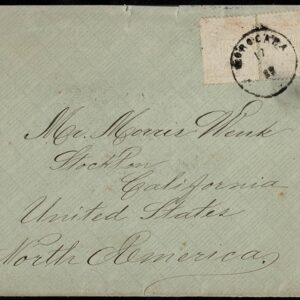 SOROCABA
17
Mr. Morris Wenk
Stockton
California
United States
North America.